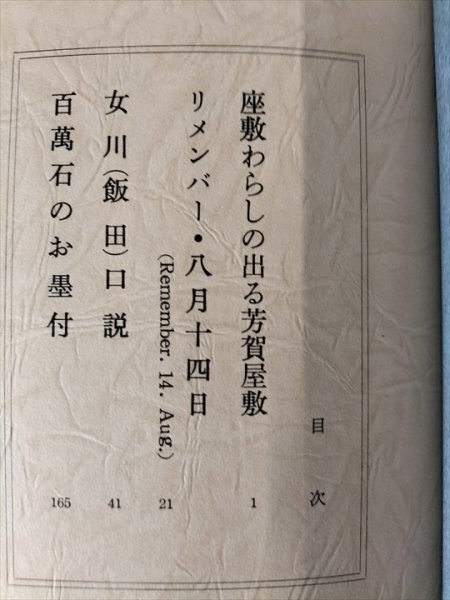 目次
座敷わらしの出る芳賀屋敷 1
リメンバー・八月十四日 21
(Remember. 14. Aug.)
女川(飯田)口説 41
百萬石のお墨付 165